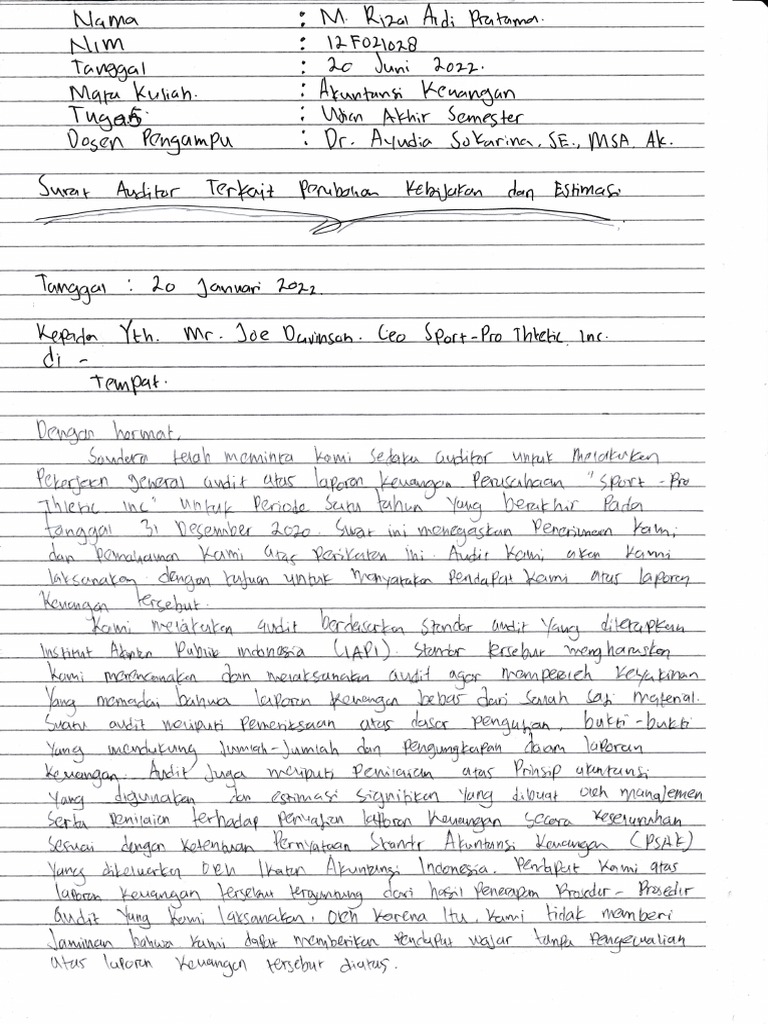 Nama : M. Rizal Ardi Pratama.
Nim : 12F021028
Tanggal : 20 Juni 2022.
Mata Kuliah. : Akuntansi Keuangan
Tugas : Ujian Akhir Semester
Dosen Pengampu : Dr. Ayudia Sokarina, SE., MSA. Ak.
Surat Auditor Terkait Perubahan Kebijakan dan Estimasi
Tanggal : 20 Januari 2022.
Kepada Yth. Mr. Joe Davinson. Ceo Sport-Pro Thletic Inc.
di -
Tempat.
Dengan hormat,
Saudara telah meminta kami sedaku auditor untuk melakukan
Pekerjaan general audit atas laporan keuangan Perusahaan "Sport-Pro
Thletic Inc" untuk Periode Satu tahun yang berakhir Pada
tanggal 31 Desember 2020. Surat ini menegaskan Penerimaan kami
dan Pemahaman kami atas Perikatan ini. Audit kami akan kami
laksanakan dengan tujuan untuk menyatakan Pendapat kami atas laporan
Keuangan tersebut.
Kami melakukan audit berdasarkan Standar audit Yang diterapkan
Institut Akuntan Publik Indonesia (IAPI). Standar tersebut mengharuskan
kami merencanakan dan melaksanakan audit agar memperoleh Keyakinan
Yang memadai bahwa laporan keuangan bebas dari Salah saji material.
Suatu audit meliputi Pemeriksaan atas dasar pengujian, bukti-bukti
Yang mendukung Jumlah-Jumlah dan Pengungkapan dalam laporan
Keuangan. Audit Juga meliputi Penilaian atas Prinsip akuntansi
Yang digunakan dan estimasi Signifikan Yang dibuat oleh manajemen
Serta Penilaian terhadap Penyajian laporan Keuangan Secara Keseluruhan
Sesuai dengan Ketentuan Pernyataan Standar Akuntansi Keuangan (PSAK)
Yang dikeluarkan oleh Ikatan Akuntansi Indonesia. Pendapat Kami atas
laporan Keuangan tersebut tergantung dari hasil Penerapan Prosedur-Prosedur
audit Yang Kami laksanakan, oleh karena Itu, Kami tidak memberi
Jaminan bahwa Kami dapat memberikan Pendapat wajar tanpa Pengecualian
atas laporan Keuangan tersebut diatas.